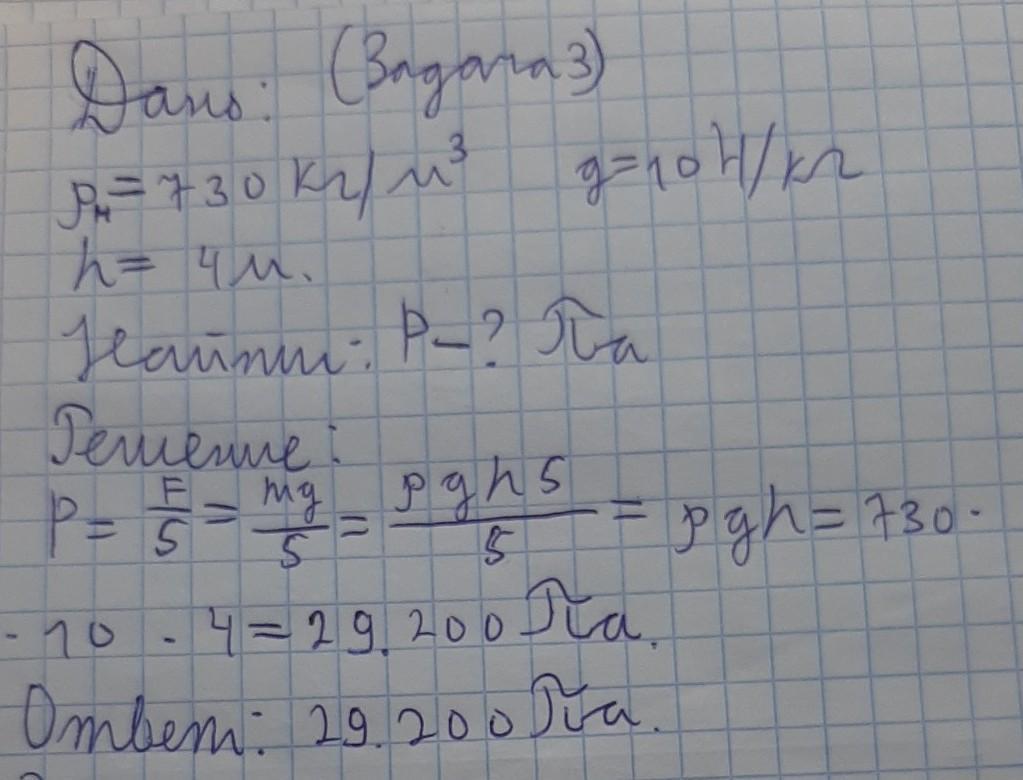 Дано: (Задача 3)
ρн = 730 кг/м³ g=10 Н/кг
h = 4 м.
Найти: P – ? Па
Решение:
P = F/S = mg/S = ρghS/S = ρgh = 730 ·
· 10 · 4 = 29.200 Па.
Ответ: 29.200 Па.